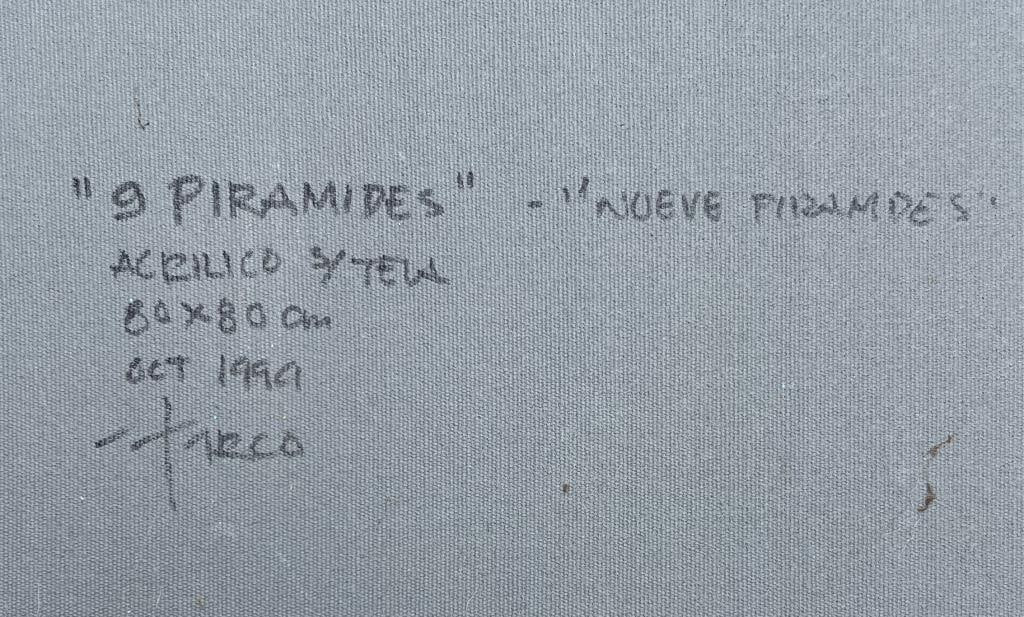 "9 PIRAMIDES" - "NUEVE PIRAMIDES"
ACRILICO S/TELA
80x80 cm
OCT 1999